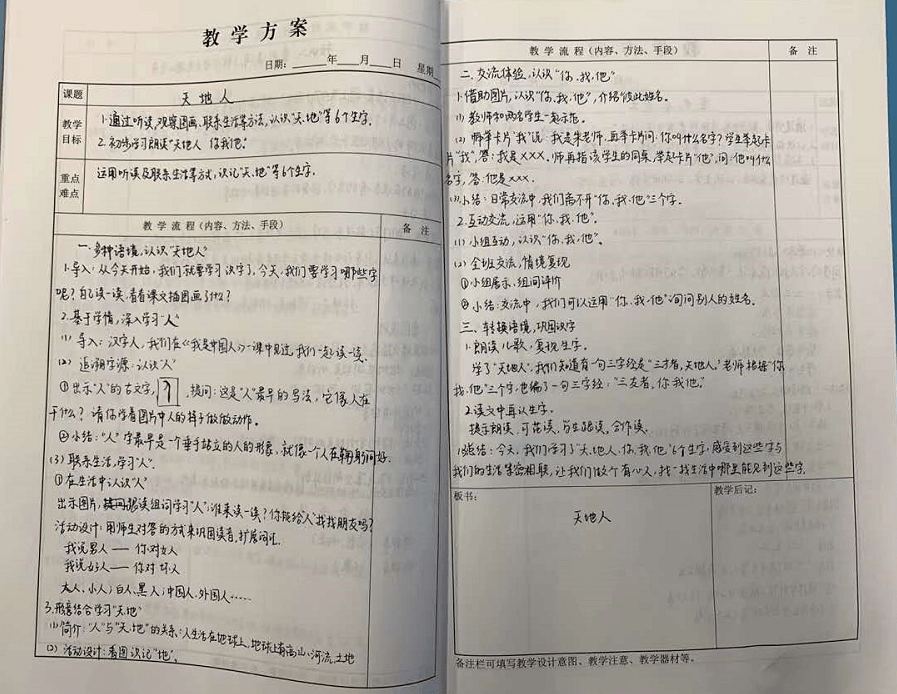 教学方案
日期：____年___月___日 星期
课题
天地人
教学目标
1.通过听读,观察图画、联系生活等方法,认识“天、地”等6个生字。
2.初步学习朗读“天地人 你我他”
重点难点
运用听读及联系生活等方式,识记“天、地”等6个生字。
教学流程（内容、方法、手段）
备 注
一.多种语境,认识“天地人”
1.导入:从今天开始,我们就要学习识字了,今天,我们要学习哪些字
呢?自己读一读,看看课文插图画了什么?
2.基于学情,深入学习“人”
(1) 导入:汉字人,我们在《我是中国人》一课中见过,我们一起读一读
(2) 追溯字源,认识“人”
①出示“人”的古文字, ,提问:这是“人”最早的写法,它像人在
干什么?请你学着图片中人的样子做做动作。
②小结:“人”字最早是一个垂手站立的人的形象,就像一个人在
(3)联系生活,学习“人”.
①在生活中认识“人”
出示图片,读组词学习“人”;谁来读一读?你能给“人”找找朋友吗?
活动设计:用师生对答的方式来巩固读音,扩展词汇.
我说男人 —— 你对女人
我说好人 —— 你对坏人
大人、小人;白人、黑人;中国人、外国人……
3.形意结合学习“天地”
(1)简介:“人”与“天、地”的关系:人生活在地球上,地球上有高山、河流、土地
(2)活动设计:看图识记“地”。
教学流程（内容、方法、手段）
备 注
二.交流体验,认识“你、我、他”
1.借助图片,认识“你、我、他”,介绍彼此姓名。
(1) 教师和两名学生一起示范。
(2) 师举卡片“我”说:我是朱老师,再举卡片问:你叫什么名字?学生举起卡
片“我”,答:我是×××.师再指该学生的同桌,举起卡片“他”,问:他叫什么
名字,答:他是×××.
(3)小结:日常交流中,我们离不开“你、我、他”三个字.
2.互动交流,运用“你、我、他”.
(1)小组互动,认识“你、我、他”。
(2)全班交流,情境复现
①小组展示,组间评价
②小结:交流中,我们可以运用“你、我、他”询问别人的姓名.
三、转换语境,巩固识字
1.朗读儿歌,复现生字.
学了“天地人”,我们知道有一句三字经是“三才者,天地人.”老师根据“你
我、他”三个字,也编了一句三字经:“三友者,你我他.”
2.读文中再认生字.
提示朗读,可范读、师生跟读、合作读.
总结:今天,我们学习了“天、地、人、你、我、他”6个生字,感受到这些字与
我们的生活紧密相联,让我们做个有心人,找一找生活中哪里能见到这些字
板书：
天地人
教学后记：
备注栏可填写教学设计意图、教学注意、教学器材等。